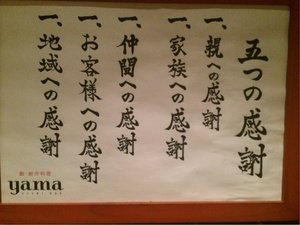 五つの感謝
一、親への感謝
一、家族への感謝
一、仲間への感謝
一、お客様への感謝
一、地域への感謝
yama